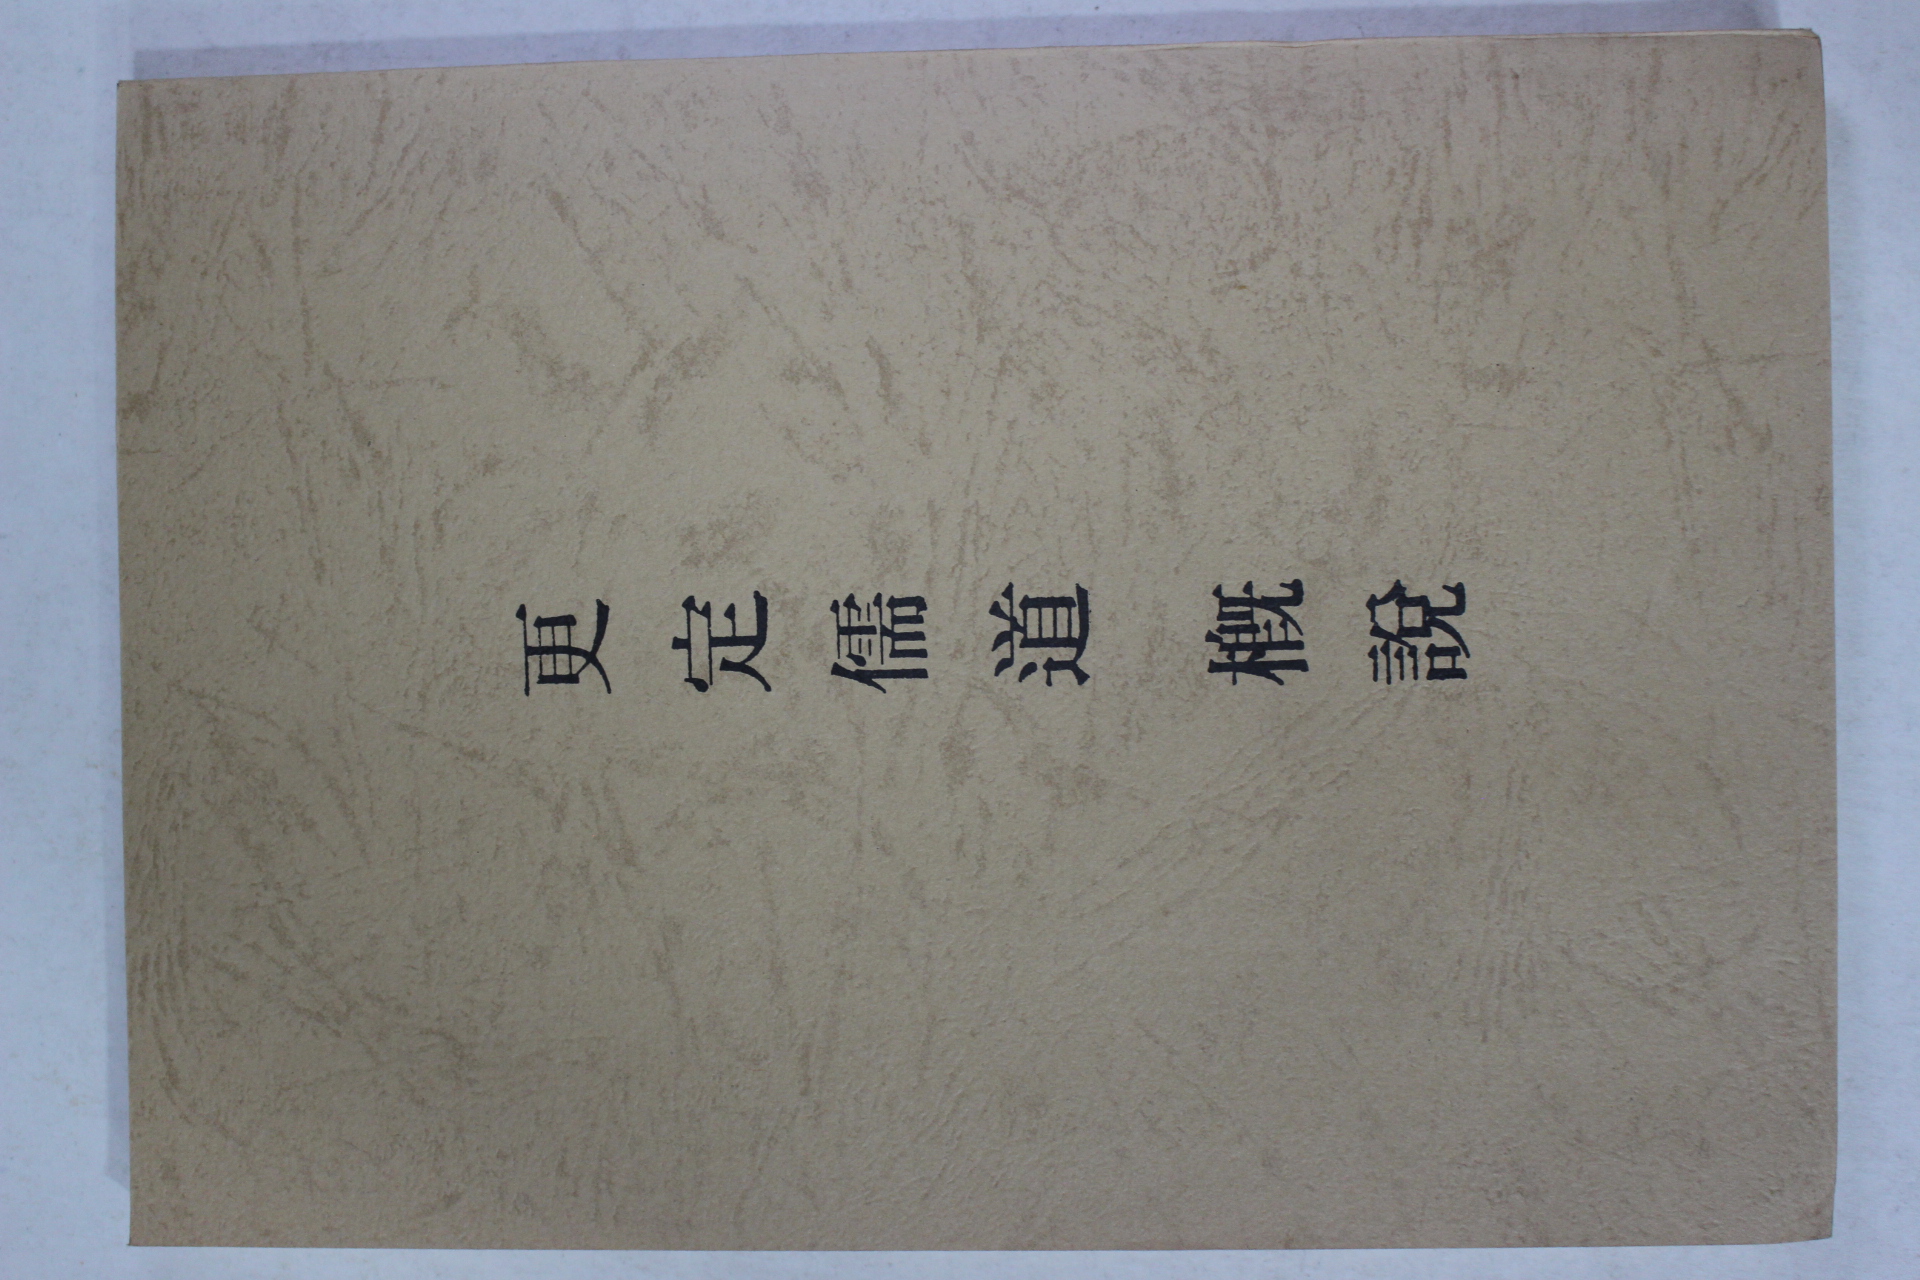 更定儒道 概說